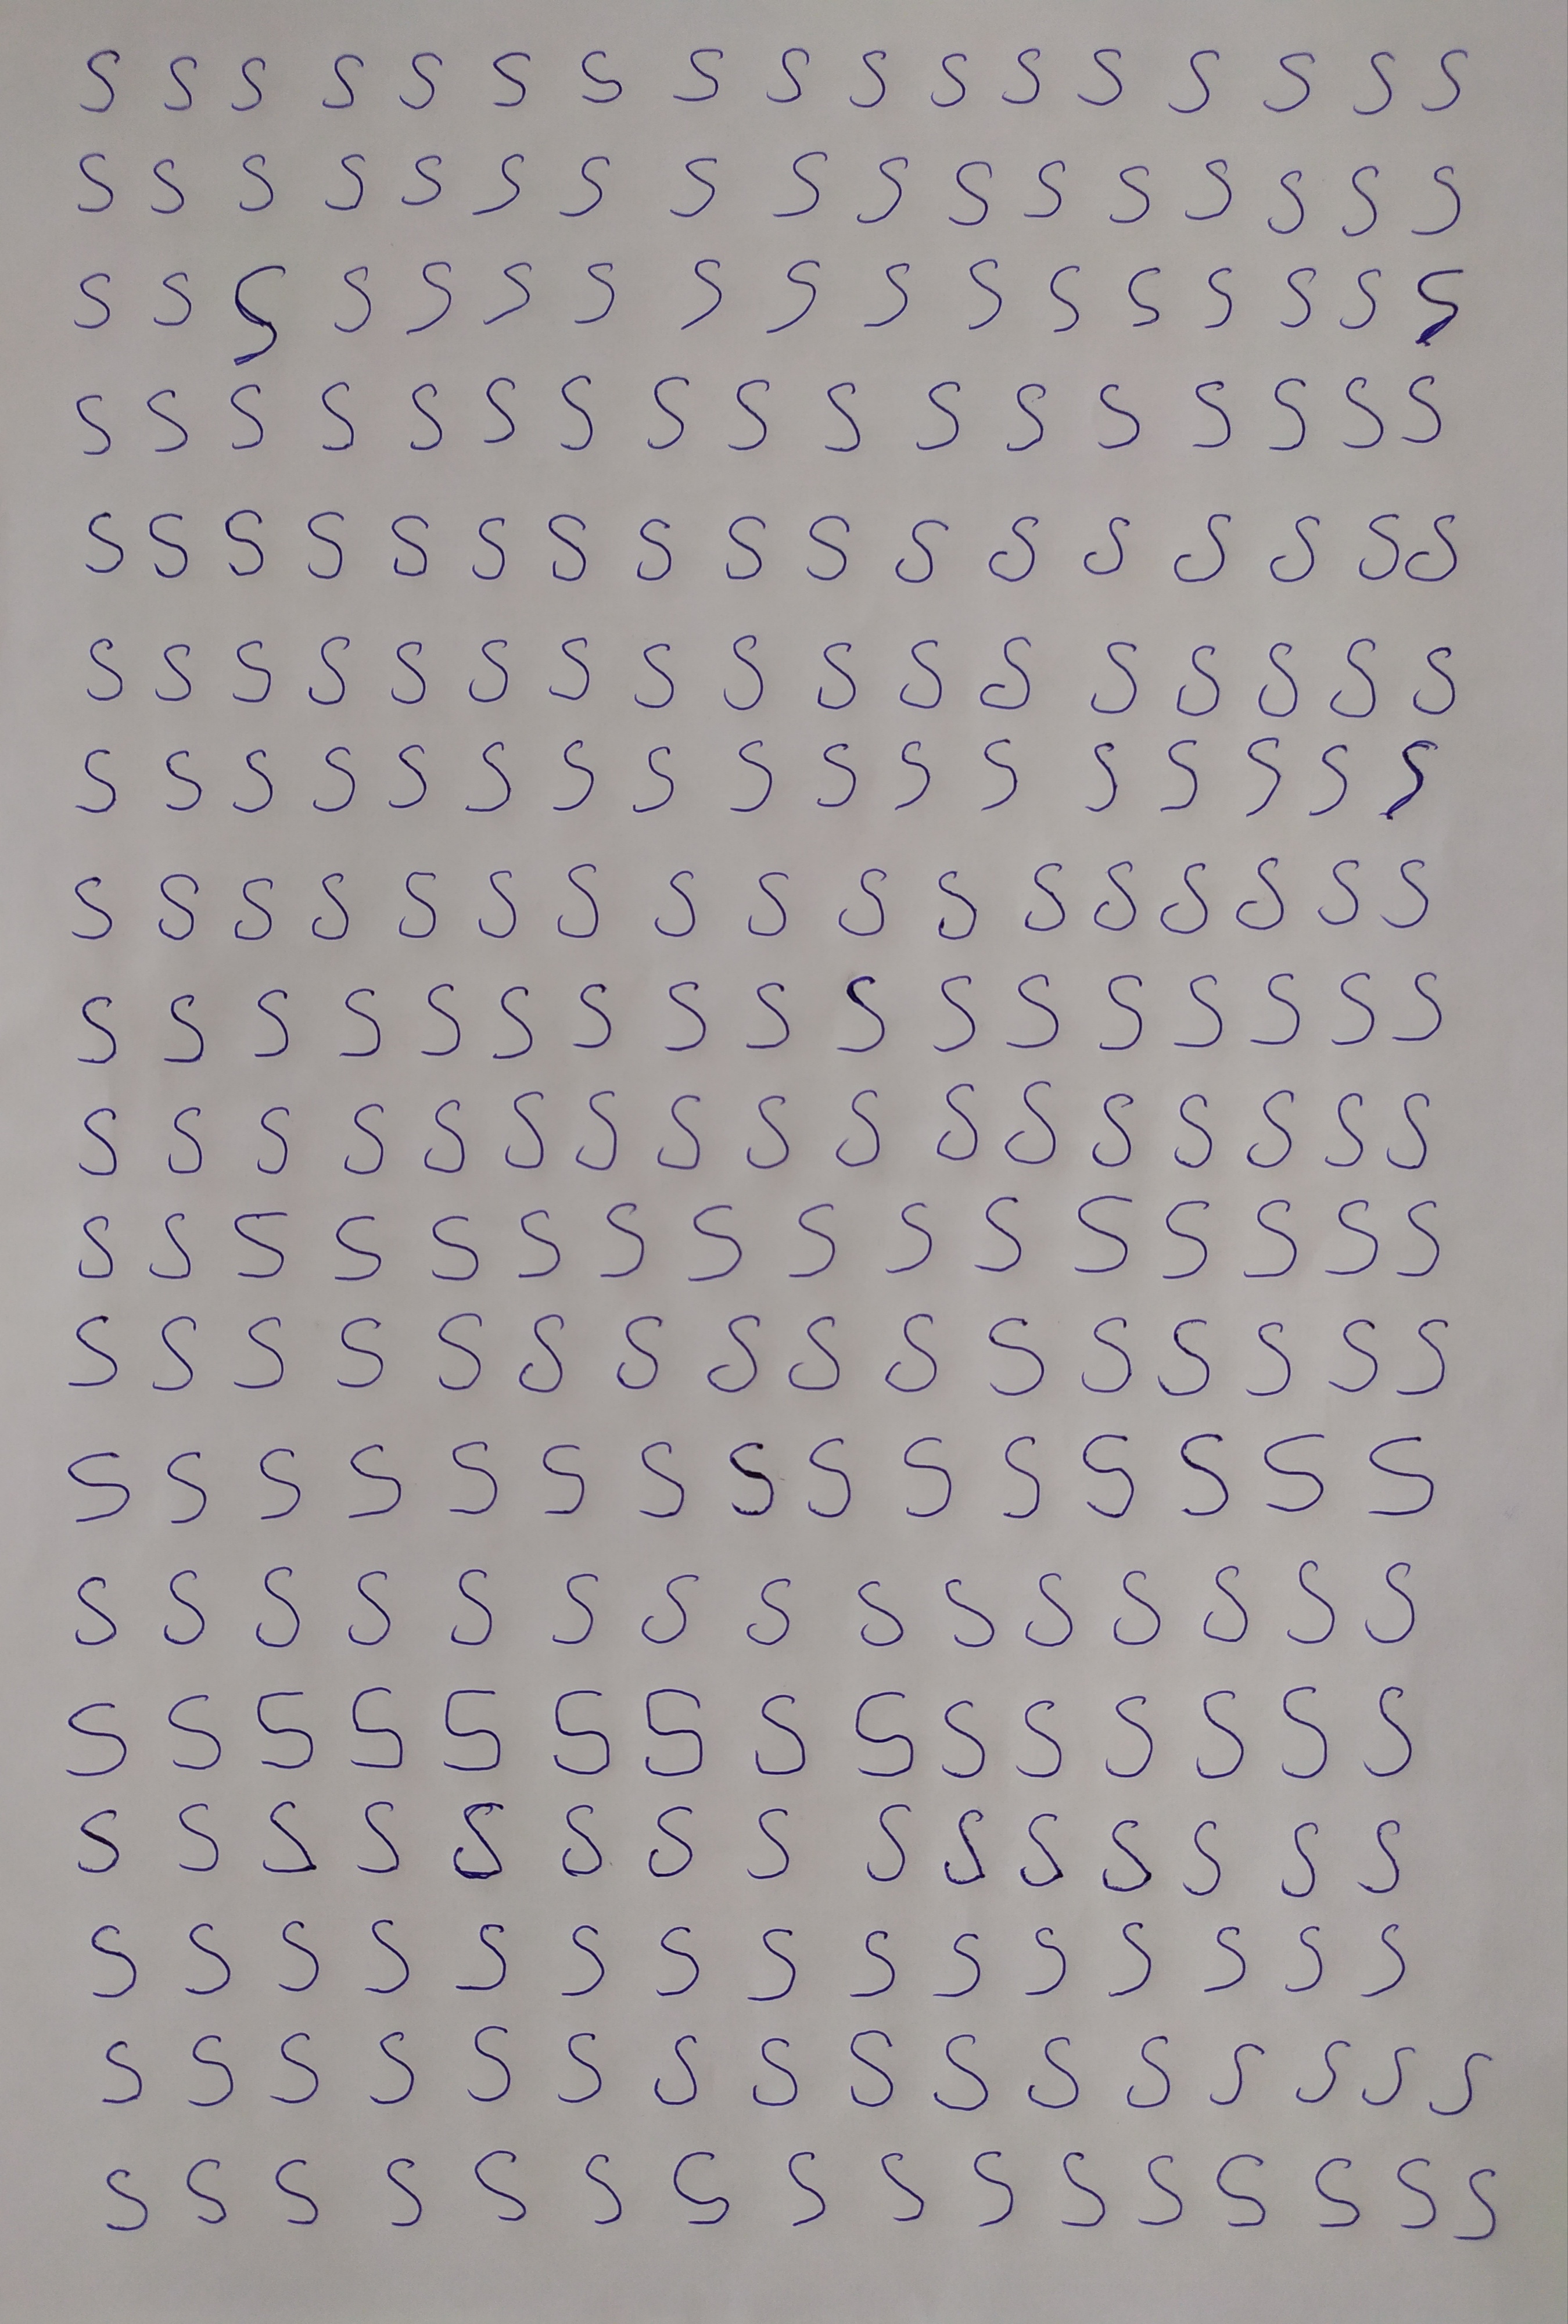 S S S S S S S S S S S S S S S S S
S S S S S S S S S S S S S S S S S
S S S S S S S S S S S S S S S S S
S S S S S S S S S S S S S S S S S
S S S S S S S S S S S S S S S S S
S S S S S S S S S S S S S S S S S
S S S S S S S S S S S S S S S S S
S S S S S S S S S S S S S S S S S
S S S S S S S S S S S S S S S S S
S S S S S S S S S S S S S S S S S
S S S S S S S S S S S S S S S S
S S S S S S S S S S S S S S S S
S S S S S S S S S S S S S S S
S S S S S S S S S S S S S S S
S S S S S S S S S S S S S S S
S S S S S S S S S S S S S S S
S S S S S S S S S S S S S S S
S S S S S S S S S S S S S S S S
S S S S S S S S S S S S S S S S